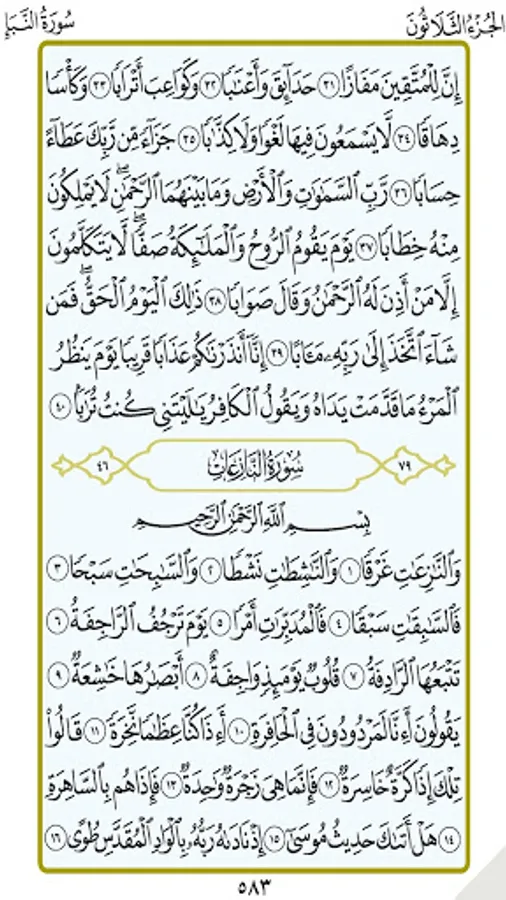 سُورَةُ النَّبَإِ
الجُزْءُ الثَّلَاثُونَ
إِنَّ لِلْمُتَّقِينَ مَفَازًا ٣١ حَدَآئِقَ وَأَعْنَٰبًا ٣٢ وَكَوَاعِبَ أَتْرَابًا ٣٣ وَكَأْسًا
دِهَاقًا ٣٤ لَّا يَسْمَعُونَ فِيهَا لَغْوًا وَلَا كِذَّٰبًا ٣٥ جَزَآءً مِّن رَّبِّكَ عَطَآءً
حِسَابًا ٣٦ رَّبِّ السَّمَٰوَٰتِ وَالْأَرْضِ وَمَا بَيْنَهُمَا الرَّحْمَٰنِۖ لَا يَمْلِكُونَ
مِنْهُ خِطَابًا ٣٧ يَوْمَ يَقُومُ الرُّوحُ وَالْمَلَٰٓئِكَةُ صَفًّاۖ لَّا يَتَكَلَّمُونَ
إِلَّا مَنْ أَذِنَ لَهُ الرَّحْمَٰنُ وَقَالَ صَوَابًا ٣٨ ذَٰلِكَ الْيَوْمُ الْحَقُّۖ فَمَن
شَآءَ اتَّخَذَ إِلَىٰ رَبِّهِۦ مَـَٔابًا ٣٩ إِنَّآ أَنذَرْنَٰكُمْ عَذَابًا قَرِيبًا يَوْمَ يَنظُرُ
الْمَرْءُ مَا قَدَّمَتْ يَدَاهُ وَيَقُولُ الْكَافِرُ يَٰلَيْتَنِي كُنتُ تُرَٰبًا ٤٠
٧٩ سُورَةُ النَّازِعَاتِ ٤٦
بِسْمِ اللَّهِ الرَّحْمَٰنِ الرَّحِيمِ
وَالنَّٰزِعَٰتِ غَرْقًا ١ وَالنَّٰشِطَٰتِ نَشْطًا ٢ وَالسَّٰبِحَٰتِ سَبْحًا ٣
فَالسَّٰبِقَٰتِ سَبْقًا ٤ فَالْمُدَبِّرَٰتِ أَمْرًا ٥ يَوْمَ تَرْجُفُ الرَّاجِفَةُ ٦
تَتْبَعُهَا الرَّادِفَةُ ٧ قُلُوبٌ يَوْمَئِذٍ وَاجِفَةٌ ٨ أَبْصَٰرُهَا خَٰشِعَةٌ ٩
يَقُولُونَ أَءِنَّا لَمَرْدُودُونَ فِي الْحَافِرَةِ ١٠ أَءِذَا كُنَّا عِظَٰمًا نَّخِرَةً ١١ قَالُوا۟
تِلْكَ إِذًا كَرَّةٌ خَاسِرَةٌ ١٢ فَإِنَّمَا هِيَ زَجْرَةٌ وَٰحِدَةٌ ١٣ فَإِذَا هُم بِالسَّاهِرَةِ
١٤ هَلْ أَتَىٰكَ حَدِيثُ مُوسَىٰٓ ١٥ إِذْ نَادَىٰهُ رَبُّهُۥ بِالْوَادِ الْمُقَدَّسِ طُوًى ١٦
٥٨٣